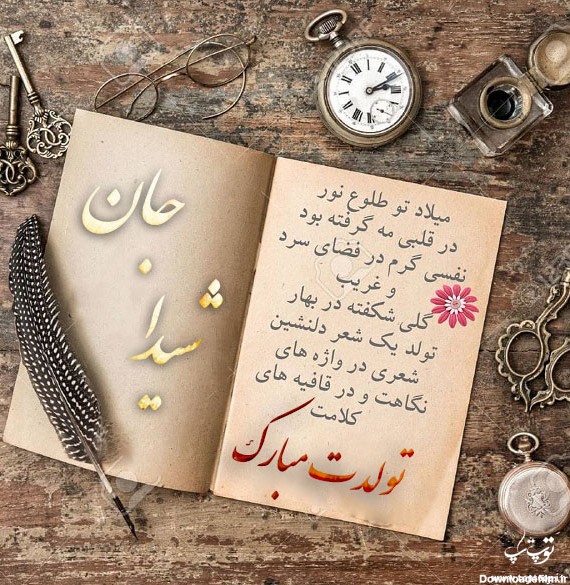 جان
شیدا
میلاد تو طلوع نور
در قلبی مه گرفته بود
نفسی گرم در فضای سرد
و غریب
گلی شکفته در بهار
تولد یک شعر دلنشین
شعری در واژه های
نگاهت و در قافیه های
کلامت
تولدت مبارک
توپ تاپ